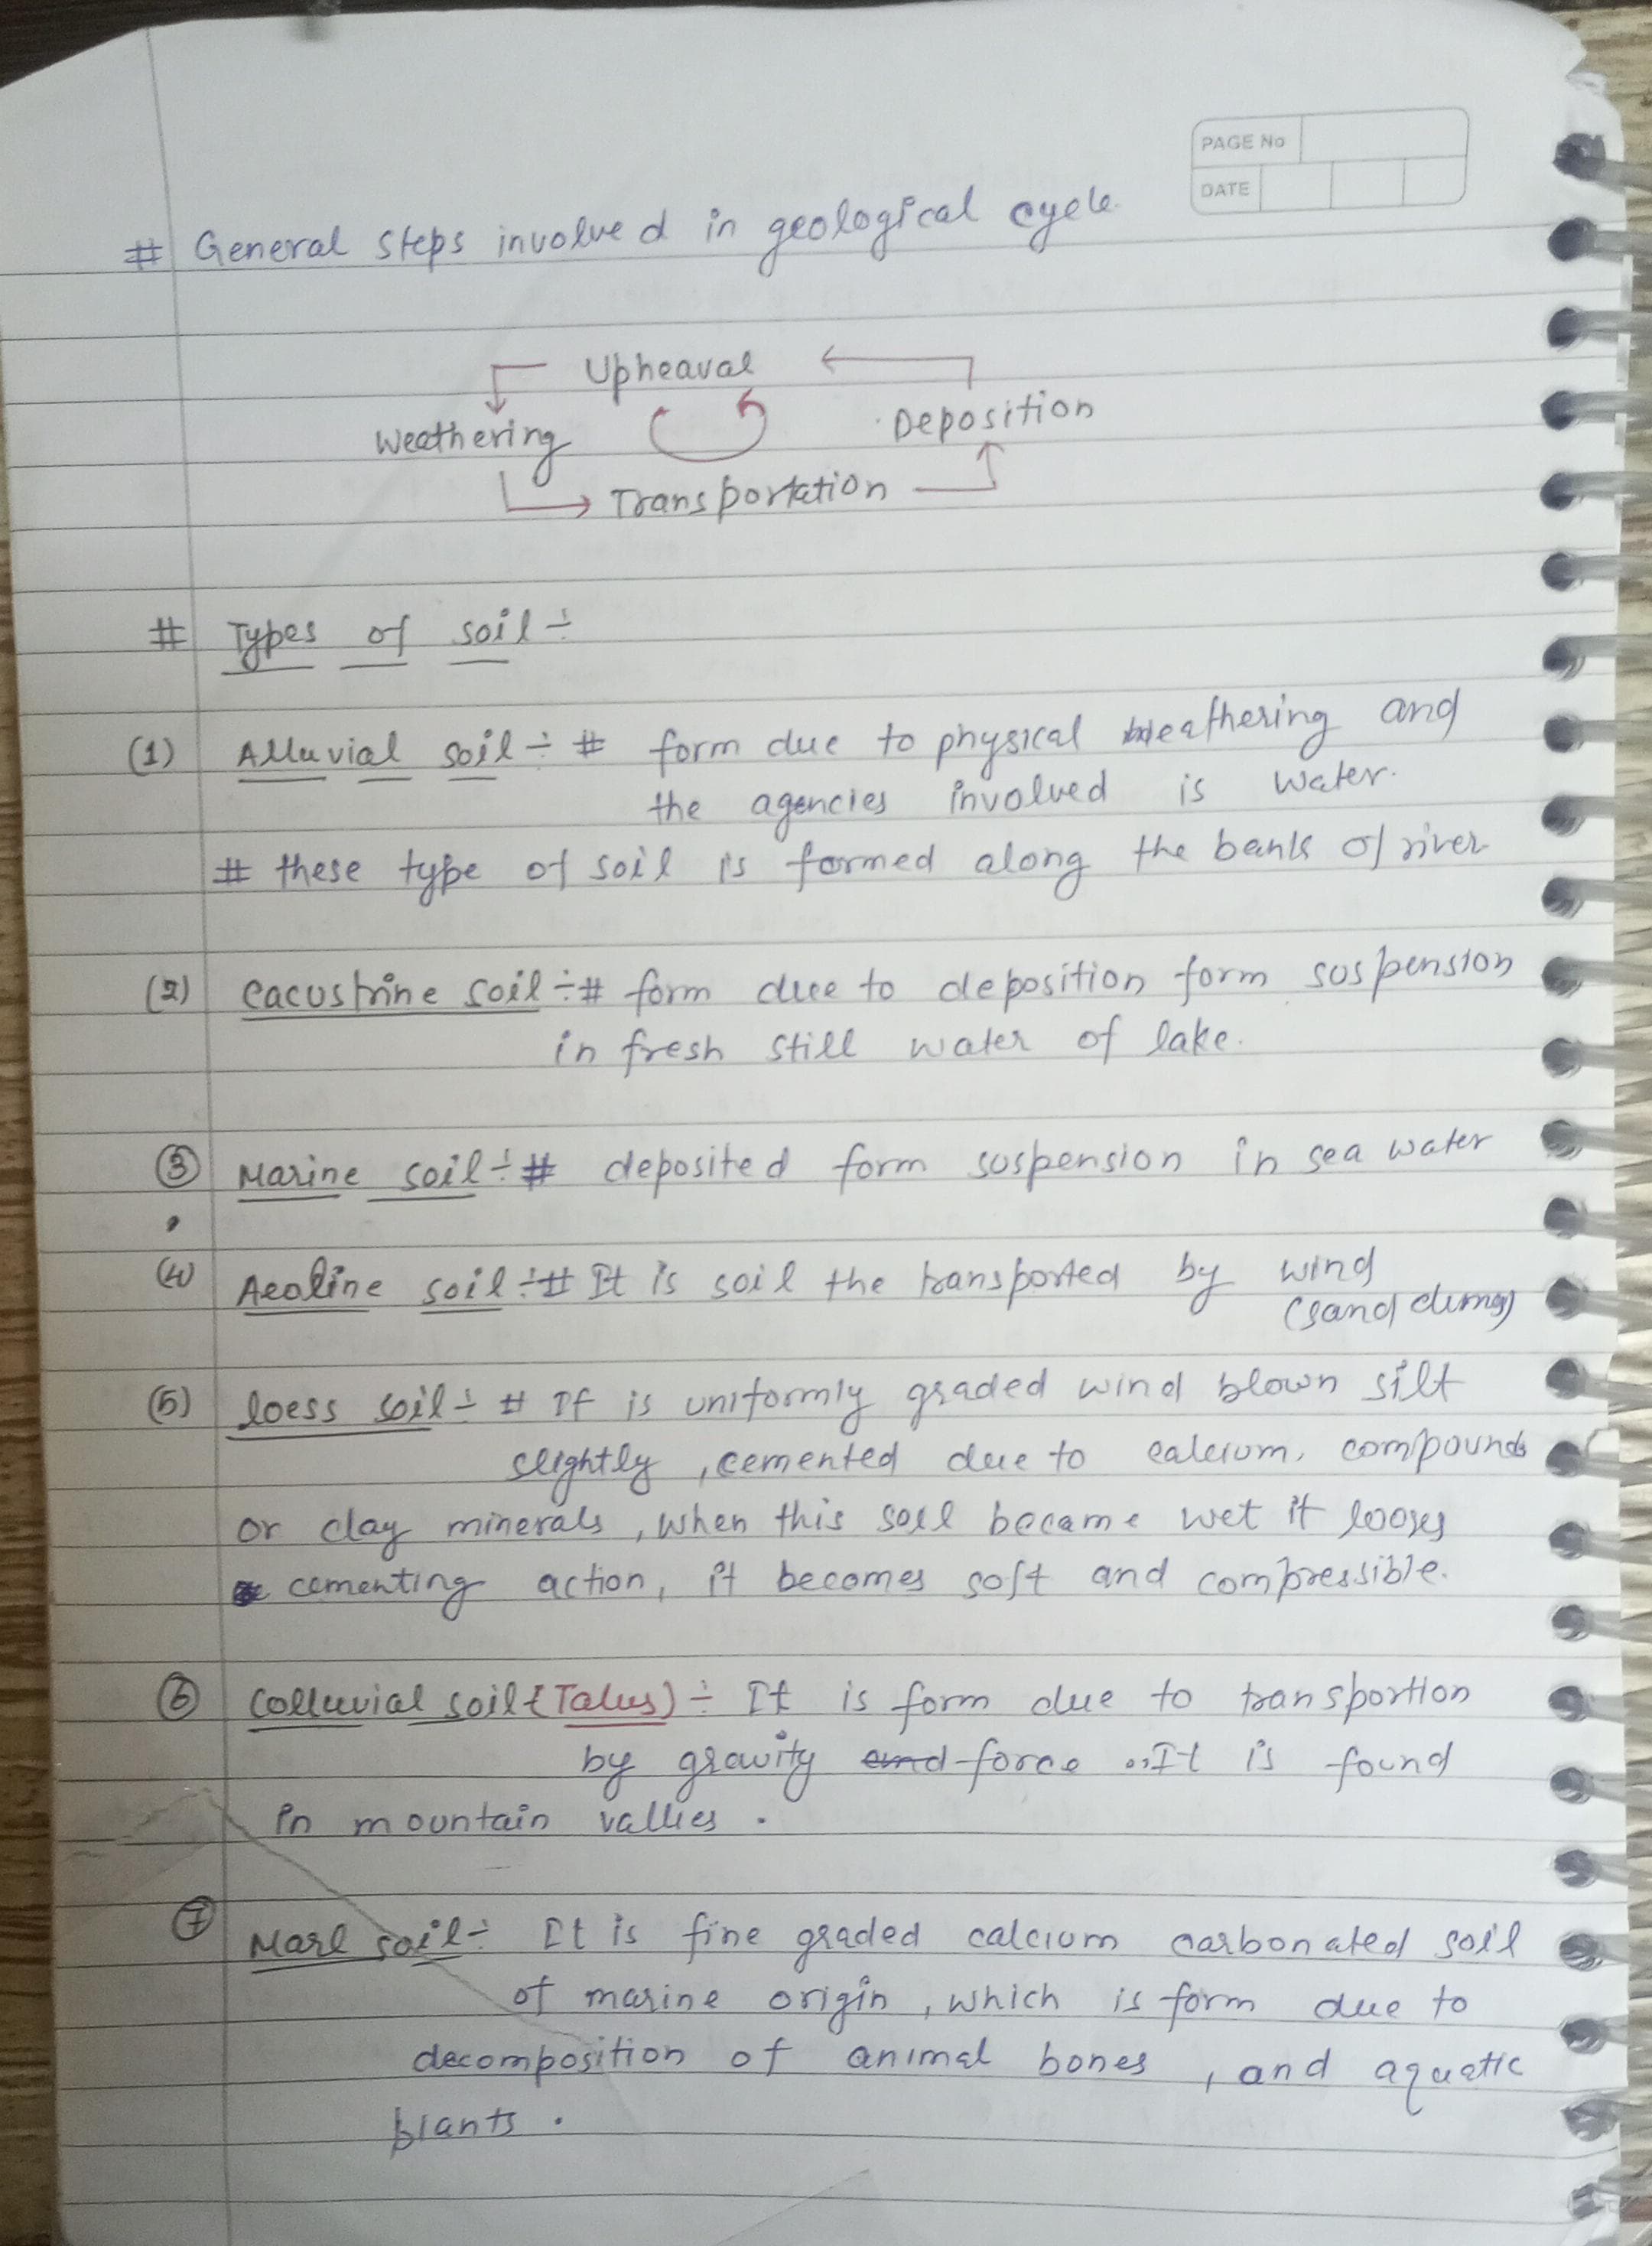 PAGE No
DATE
# General steps involved in geological cycle.
Upheaval
Weathering
Deposition
Transportation
# Types of soil ÷
(1) Alluvial soil ÷ # form due to physical weathering and
the agencies involved is water.
# these type of soil is formed along the banks of river
(2) Lacustrine soil ÷ # form due to deposition form suspension
in fresh still water of lake.
(3) Marine soil ÷ # deposited form suspension in sea water
(4) Aeoline soil ÷ # It is soil the transported by wind
(sand
(5) loess soil ÷ # It is uniformly graded wind blown silt
slightly, cemented due to calcium, compounds
or clay minerals, when this soil became wet it looses
cementing action, it becomes soft and compressible.
(6) Colluvial soil (Talus) ÷ It is form due to transportion
by gravity force . It is found
in mountain vallies .
(7) Marl soil ÷ It is fine graded calcium carbonated soil
of marine origin, which is form due to
decomposition of animal bones , and aquatic
plants .